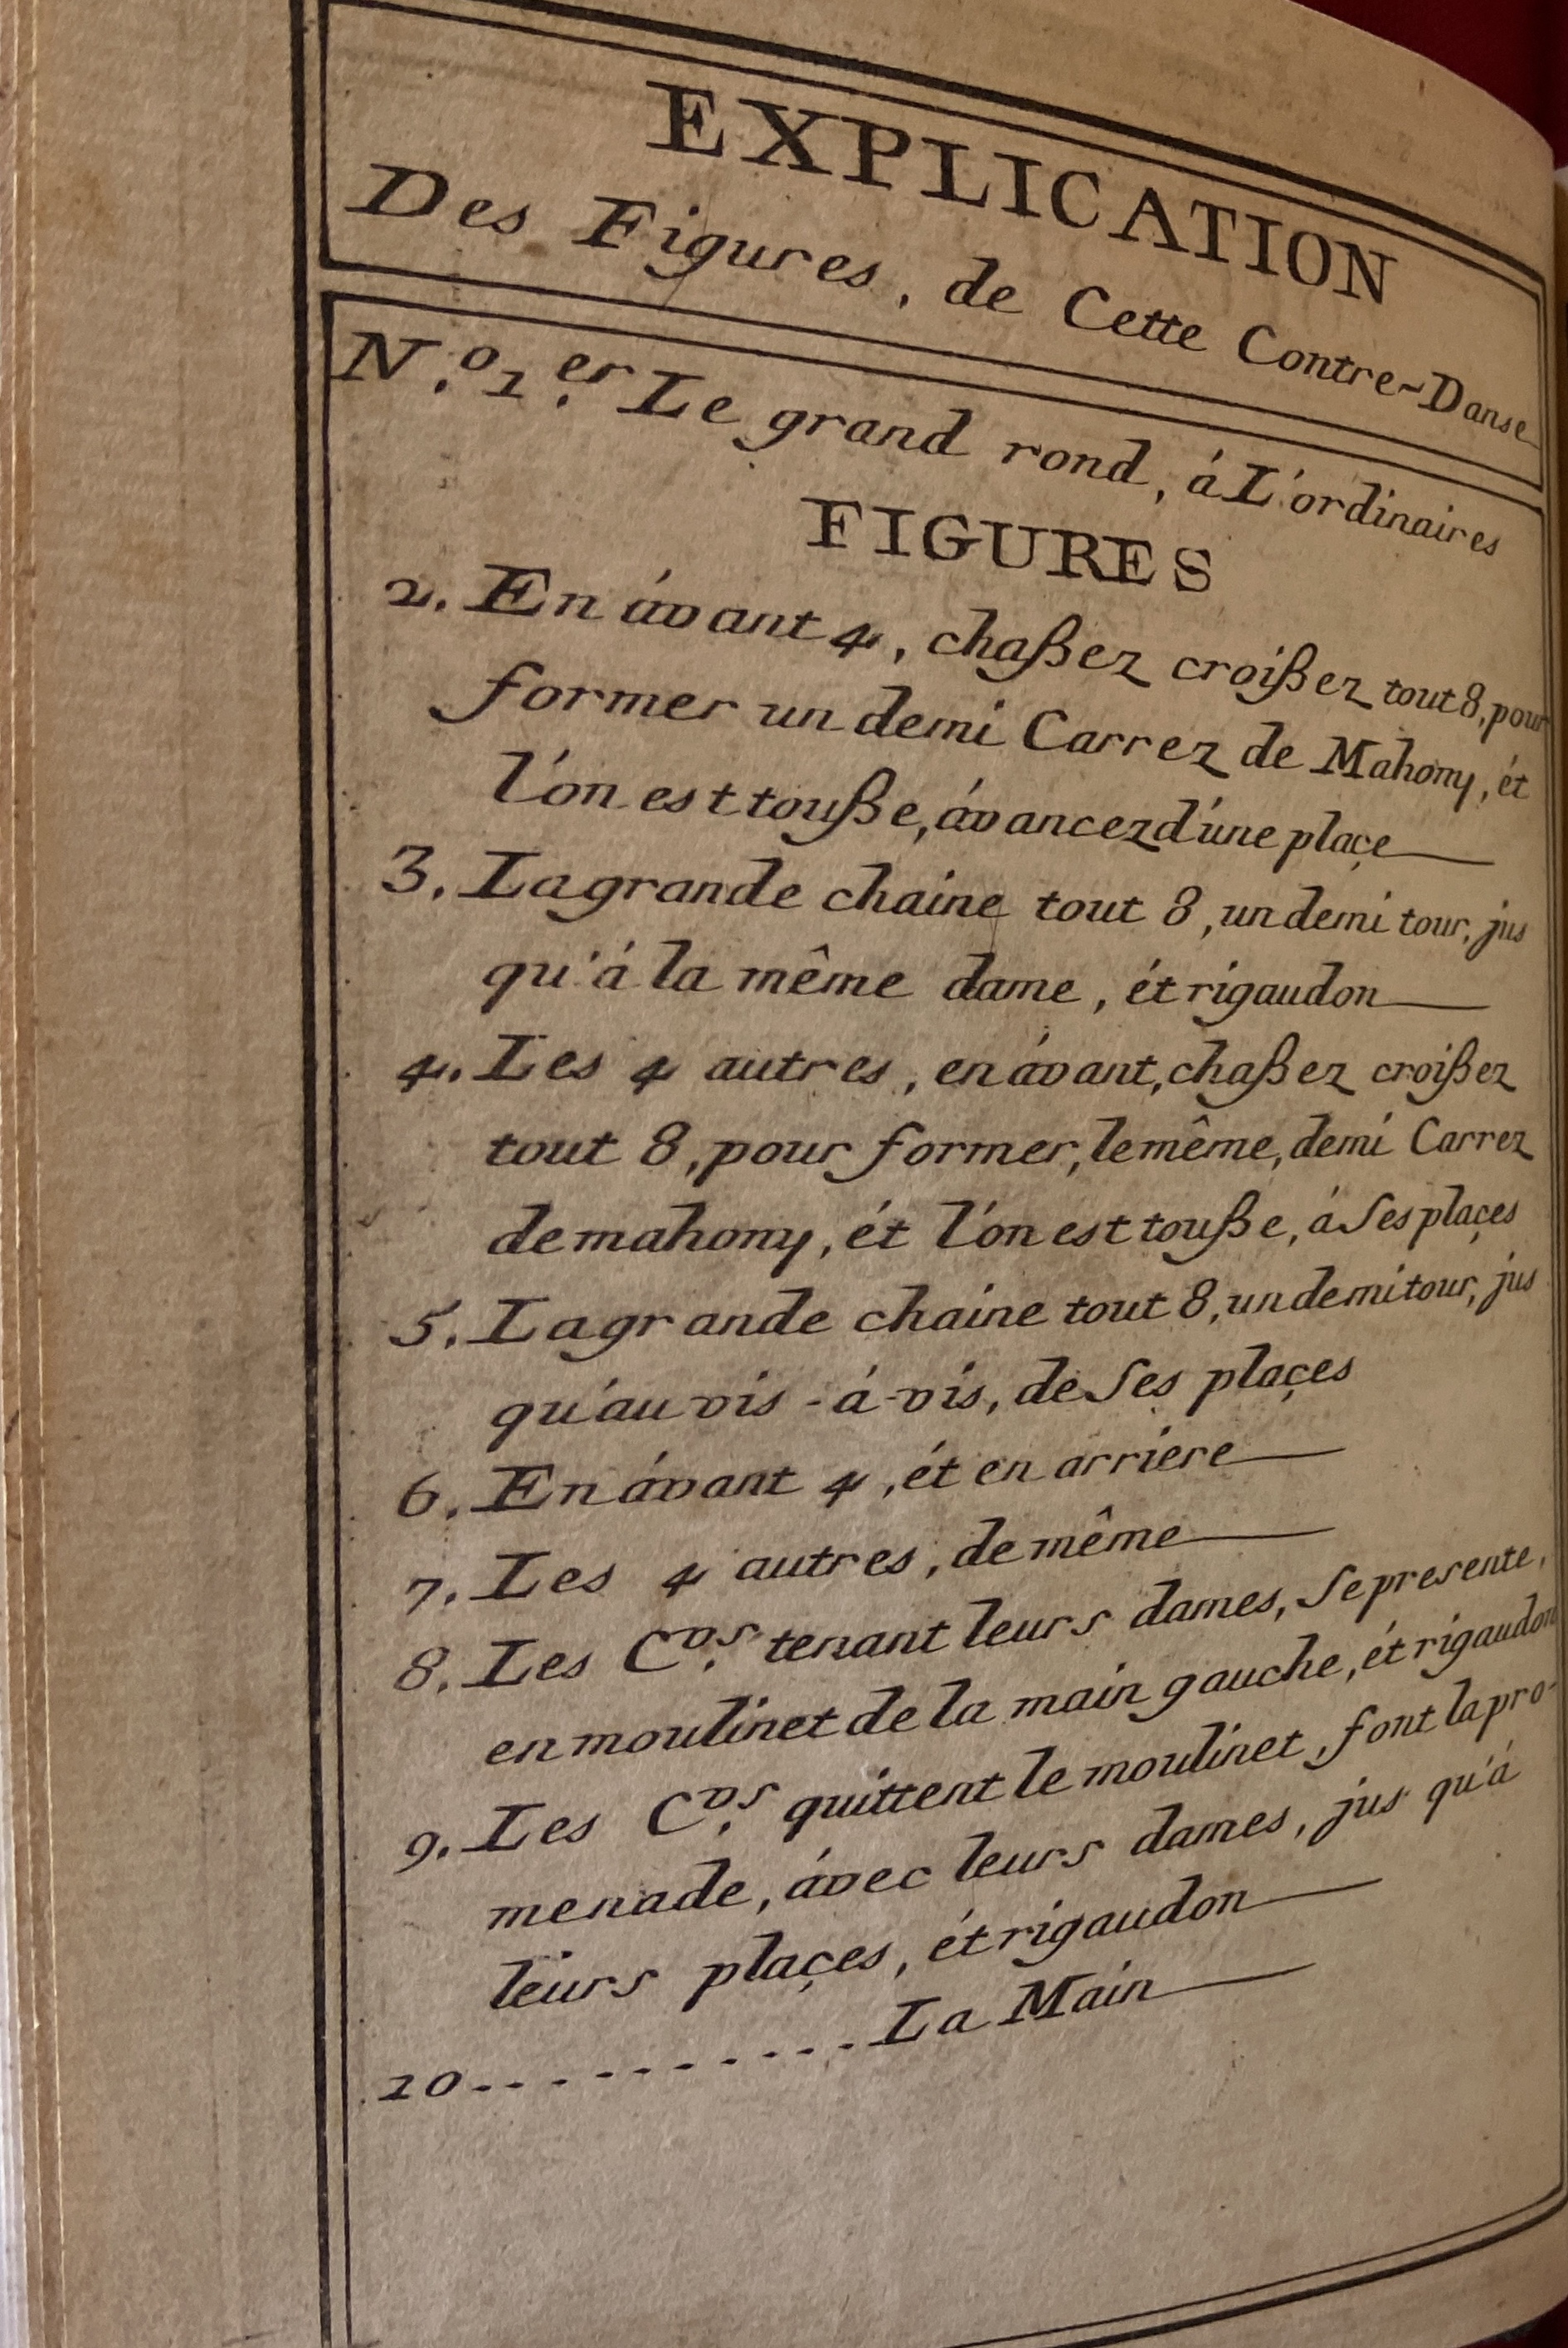 EXPLICATION
Des Figures, de Cette Contre-Danse
N.º 1.er Le grand rond, á L'ordinaires
FIGURES
2. En ávant 4, chaßez croißez tout 8, pour
former un demi Carrez de Mahony, ét
l'on est toußе, ávancez d'une plaçe
3. La grande chaine tout 8, un demi tour, jus
qu'á la même dame, ét rigaudon
4. Les 4 autres, en ávant, chaßez croißez
tout 8, pour former, le même, demi Carrez
de mahony, ét l'on est toußе, á ses plaçes
5. La grande chaine tout 8, un demi tour, jus
qu'au vis-á-vis, de ses plaçes
6. En ávant 4, ét en arriere
7. Les 4 autres, de même
8. Les C.rs tenant leurs dames, se presente,
en moulinet de la main gauche, ét rigaudon
9. Les C.rs quittent le moulinet, font la pro-
menade, ávec leurs dames, jus qu'á
leurs plaçes, ét rigaudon
10........... La Main